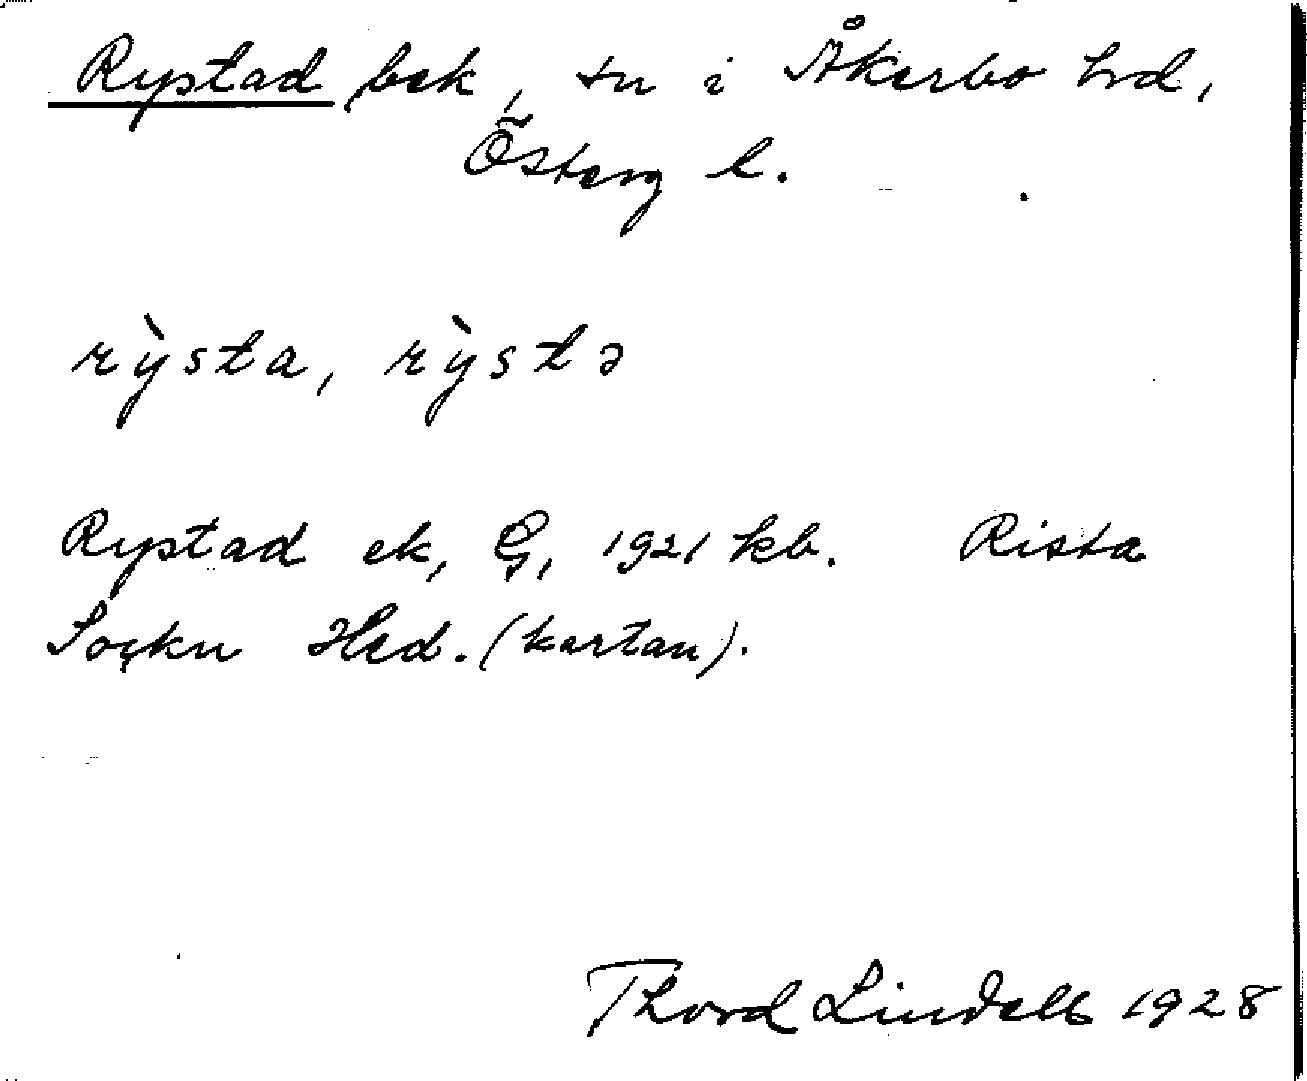 Rystad bek, sn i Åkerbo hrd,
Österg l.
rỳsta, rỳstə
Rystad ek, G, 1921 kb. Rista
Soçkn Hed. (kartan).
Thord Lindell 1928